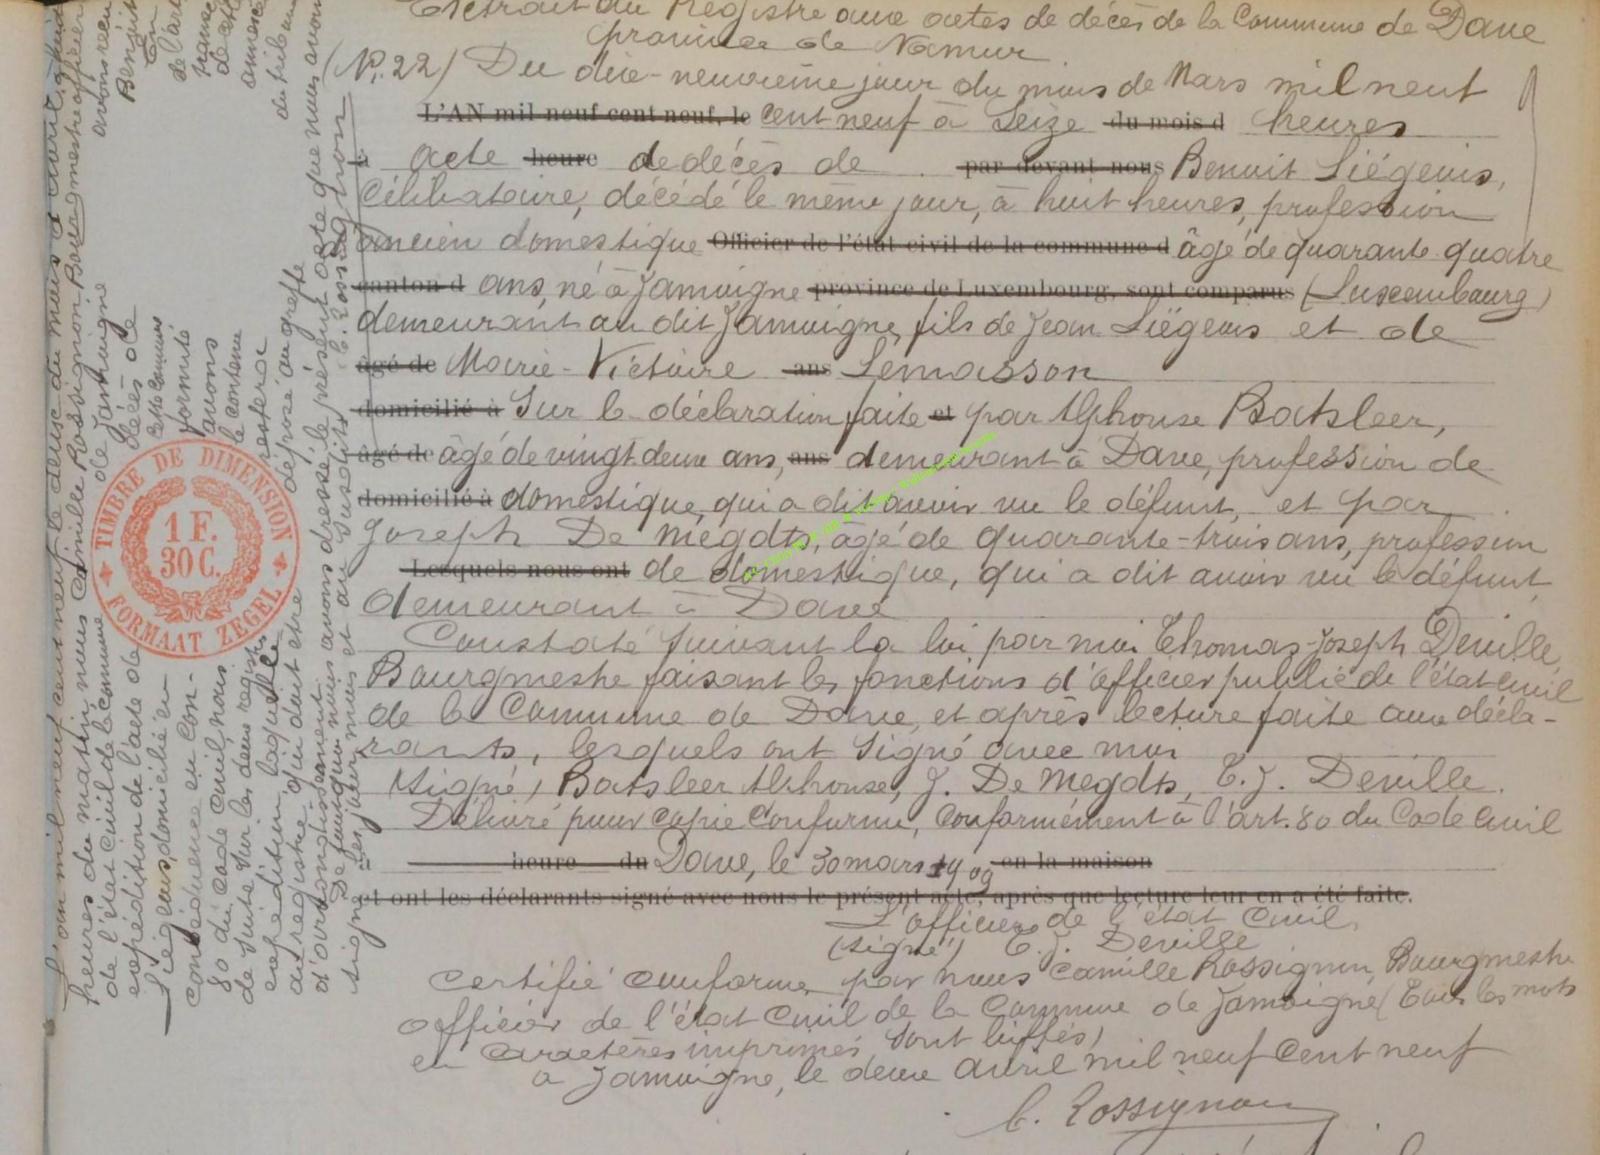 Extrait du Registre aux actes de décès de la Commune de Dave
province de Namur
(No. 22) Du dix-neuvième jour du mois de Mars mil neuf
L'AN mil neuf cent neuf, le cent neuf à Seize du mois d heures
à acte heure de décès de par devant nous Benoit Liégeois,
Célibataire, décédé le même jour, à huit heures, profession
ancien domestique Officier de l'état civil de la commune d âgé de quarante quatre
canton d ans, né à Jamoigne province de Luxembourg, sont comparus (Luxembourg)
demeurant au dit Jamoigne, fils de Jean Liégeois et de
âgé de Marie-Victoire ans Lemasson
domicilié à Sur la déclaration faite et par Alphonse Batsleer,
âgé de âgé de vingt deux ans, ans demeurant à Dave, profession de
domicilié à domestique, qui a dit avoir vu le défunt, et par
Joseph De Megdts, âgé de quarante-trois ans, profession
Lesquels nous ont de domestique, qui a dit avoir vu le défunt,
demeurant à Dave
Constaté suivant la loi par moi Thomas-Joseph Deville,
Bourgmestre faisant les fonctions d'officier public de l'état civil
de la Commune de Dave, et après lecture faite aux décla-
rants, lesquels ont signé avec moi
Signé, Batsleer Alphonse, J. De Megdts, T. J. Deville.
Délivré pour copie conforme, conformément à l'art. 80 du Code Civil
heure du Dave, le 30 mars 1909 en la maison
et ont les déclarants signé avec nous le présent acte, après que lecture leur en a été faite.
L'officier de l'état civil,
(signé) T. J. Deville
Certifié conforme par nous Camille Rossignon, Bourgmestre
officier de l'état civil de la Commune de Jamoigne (Tous les mots
en caractères imprimés sont biffés)
à Jamoigne, le deux avril mil neuf cent neuf
C. Rossignon
L'an mil neuf cent neuf le deux du mois d'avril, à huit
heures du matin, nous Camille Rossignon Bourgmestre officier
de l'état civil de la commune de Jamoigne avons reçu
expédition de l'acte de décès de Benoit
Liégeois, domicilié en cette commune
conséquence en con- formité
80 du code civil, nous avons
de suite sur les deux registres le contenu
expédition, laquelle restera
au registre qui doit être déposé au greffe
du tribunal
De quoi nous avons dressé le présent acte que nous avons
signé les jour, mois et an susdits C. Rossignon
TIMBRE DE DIMENSION
1 F.
30 C.
FORMAAT ZEGEL